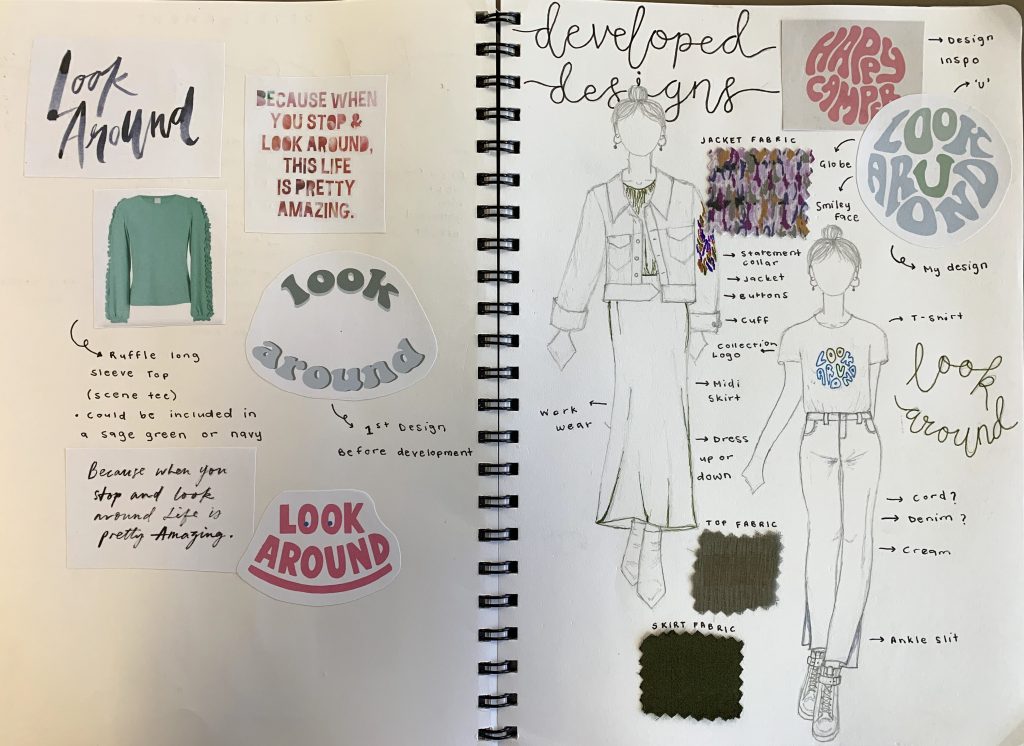 Look
Around
BECAUSE WHEN
YOU STOP &
LOOK AROUND,
THIS LIFE
IS PRETTY
AMAZING.
Ruffle long
sleeve Top
(scene tee)
• Could be included in
a sage green or navy
look
around
1st Design
Before development
Because when you
stop and look
around Life is
pretty Amazing.
LOOK
AROUND
developed
designs
HAPPY
CAMPER
Design
Inspo
'U'
LOOK
AROUND
Globe
Smiley
Face
My design
JACKET FABRIC
Statement
collar
Jacket
Buttons
Cuff
Collection
Logo
Midi
Skirt
Work
wear
Dress
up or
down
TOP FABRIC
SKIRT FABRIC
T-Shirt
LOOK
AROUND
look
around
Cord?
Denim?
Cream
Ankle Slit